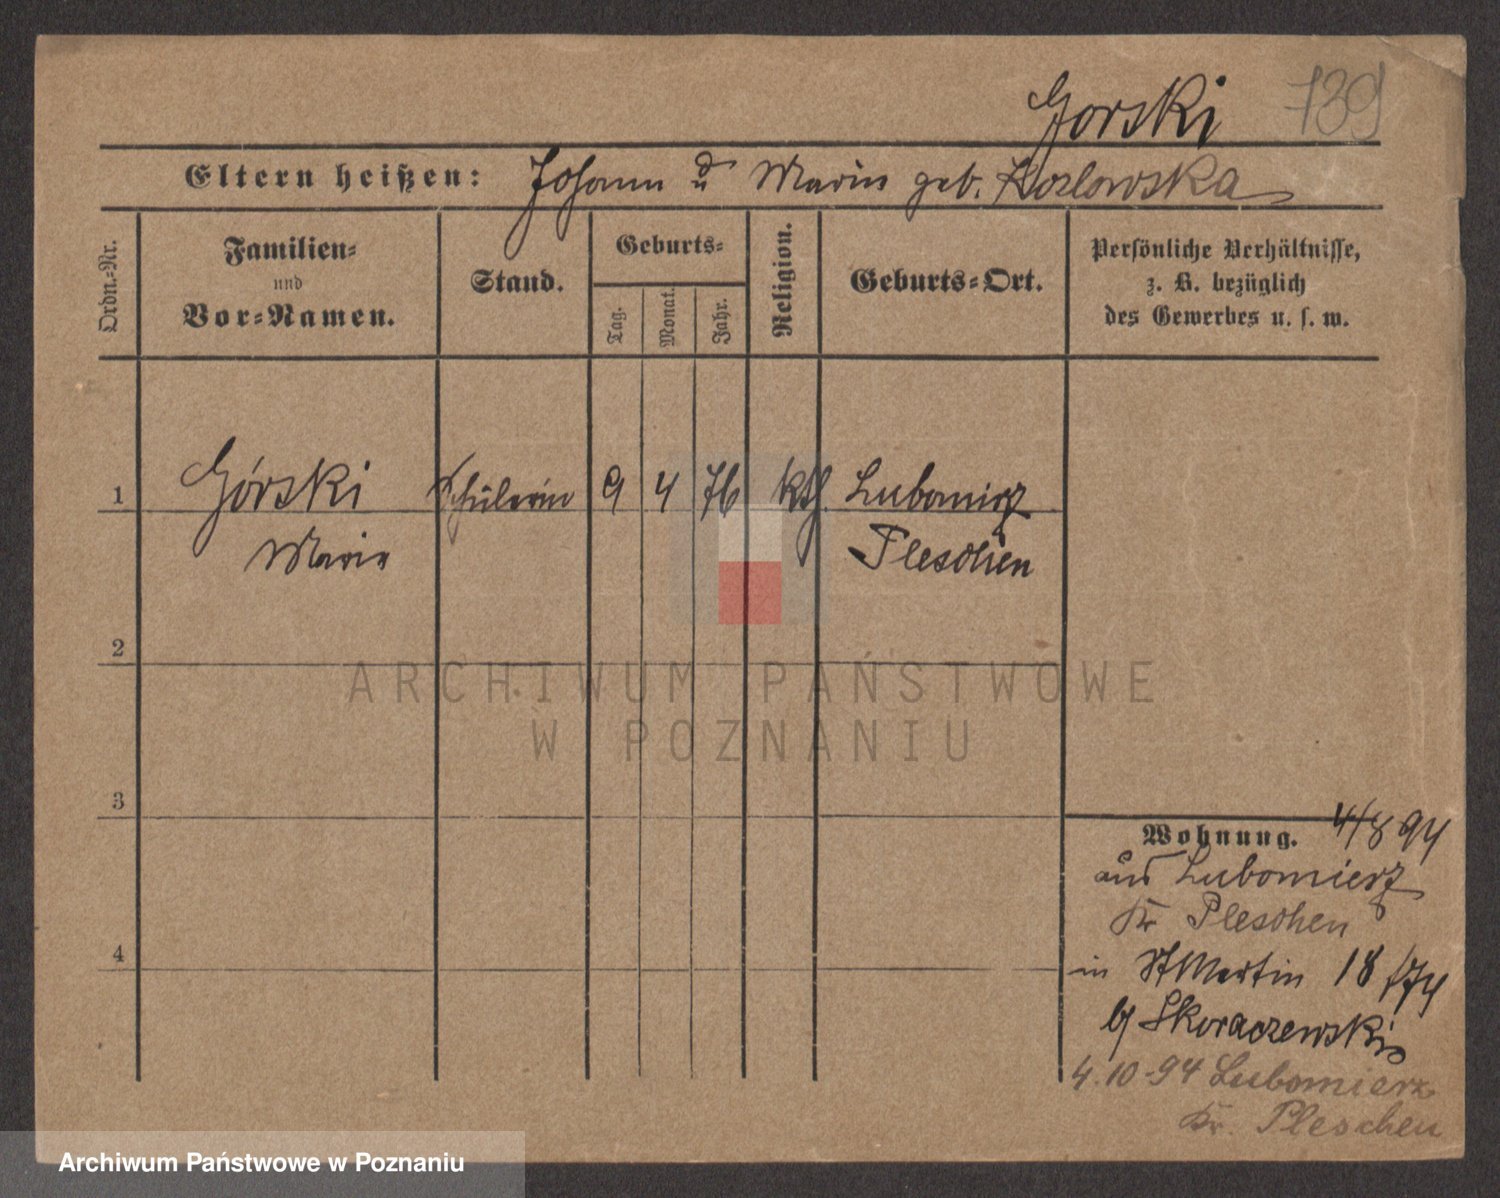 Gorski 739
Eltern heißen: Johann u Maria geb. Kozlowska
Ordn.-Nr.
Familien-
und
Vor-Namen.
Stand.
Geburts-
Tag.
Monat.
Jahr.
Religion.
Geburts-Ort.
Persönliche Verhältnisse,
z. B. bezüglich
des Gewerbes u. s. w.
1 Górski Schülerin 9 4 76 kth. Lubomierz
Maria Pleschen
2
3
4
Wohnung. 4/8 94
aus Lubomierz
Kr Pleschen
in St Martin 18 /74
bj Skoraczewski
4.10-94 Lubomierz
Kr. Pleschen
ARCHIWUM PAŃSTWOWE
W POZNANIU
Archiwum Państwowe w Poznaniu